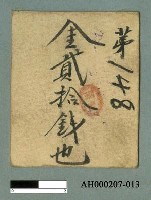 第148
金貳拾錢也
AH000207-013